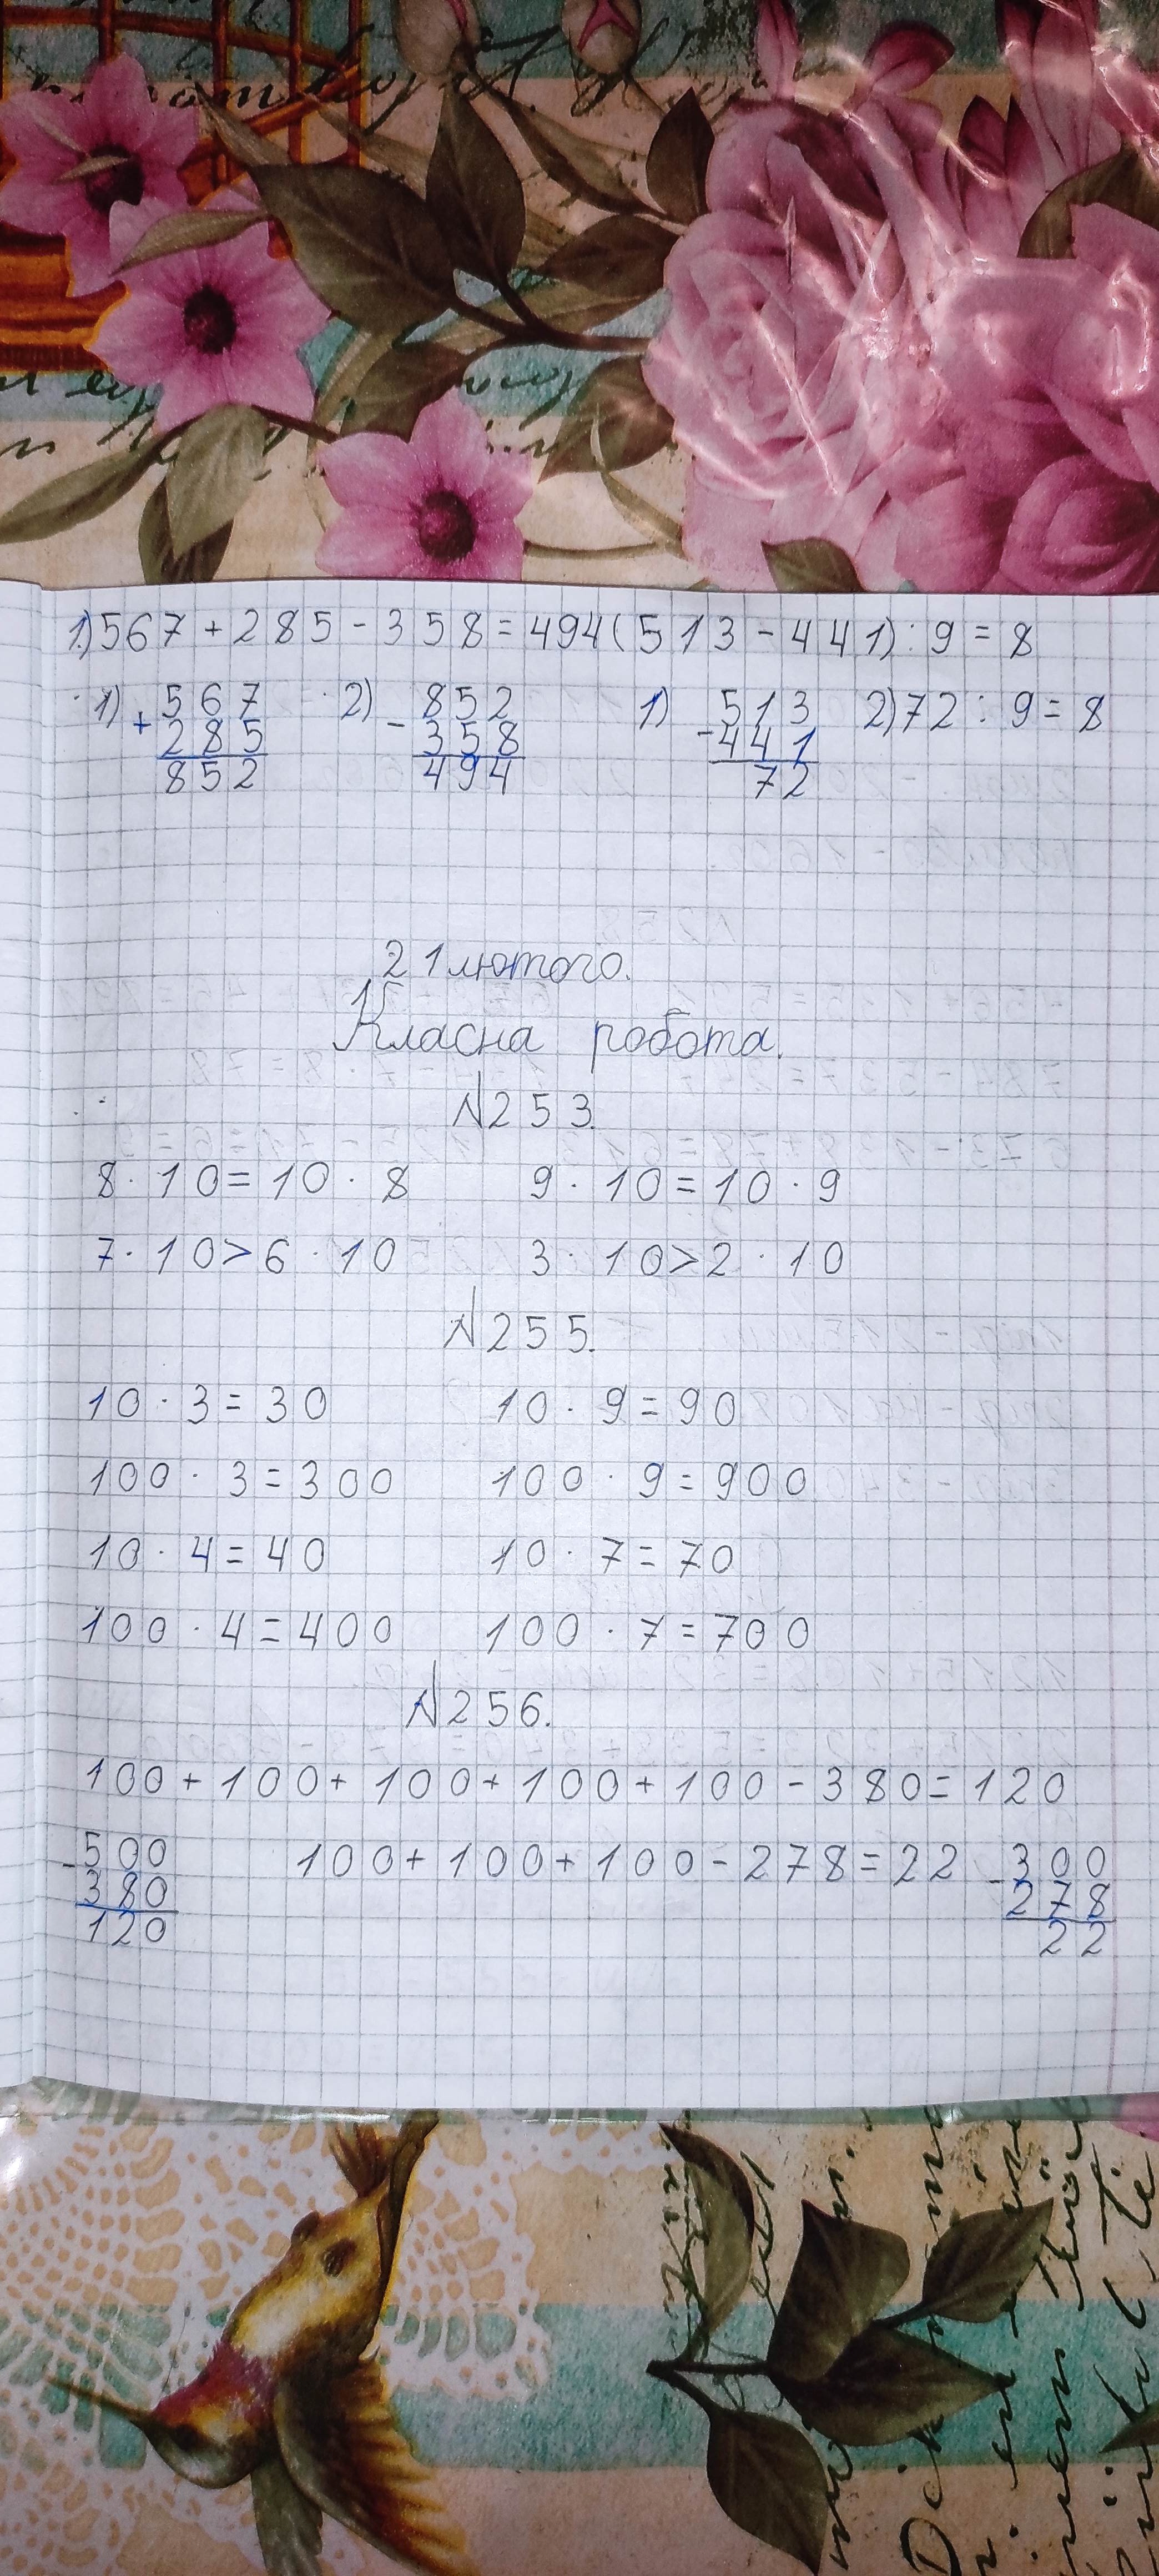 1) 567 + 285 - 358 = 494 (513 - 441) : 9 = 8
1) + 567 2) - 852 1) - 513 2) 72 : 9 = 8
285 358 441
852 494 72
21 лютого.
Класна робота.
№253.
8 · 10 = 10 · 8 9 · 10 = 10 · 9
7 · 10 > 6 · 10 3 · 10 > 2 · 10
№255.
10 · 3 = 30 10 · 9 = 90
100 · 3 = 300 100 · 9 = 900
10 · 4 = 40 10 · 7 = 70
100 · 4 = 400 100 · 7 = 700
№256.
100 + 100 + 100 + 100 + 100 - 380 = 120
- 500 100 + 100 + 100 - 278 = 22 - 300
380 278
120 22